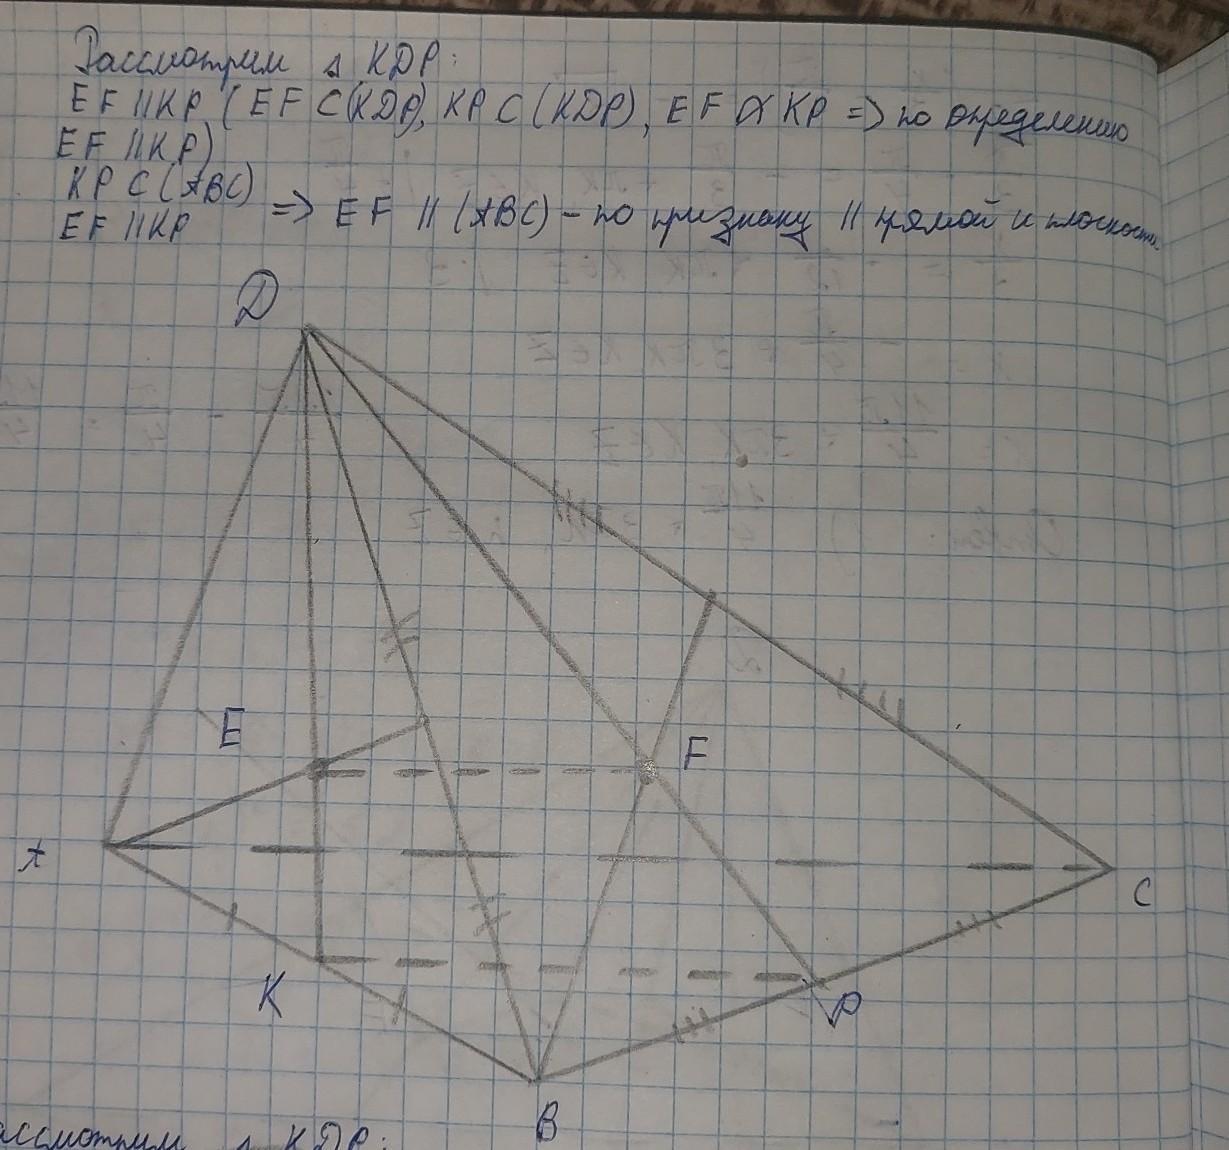 Рассмотрим Δ KDP:
EF || KP (EF ⊂ (KDP), KP ⊂ (KDP), EF ∝ KP => по определению
EF || KP)
KP ⊂ (ABC)
EF || KP => EF || (ABC) - по признаку || прямой и плоскости
D
E
F
A
C
K
P
B
Рассмотрим Δ KDP: